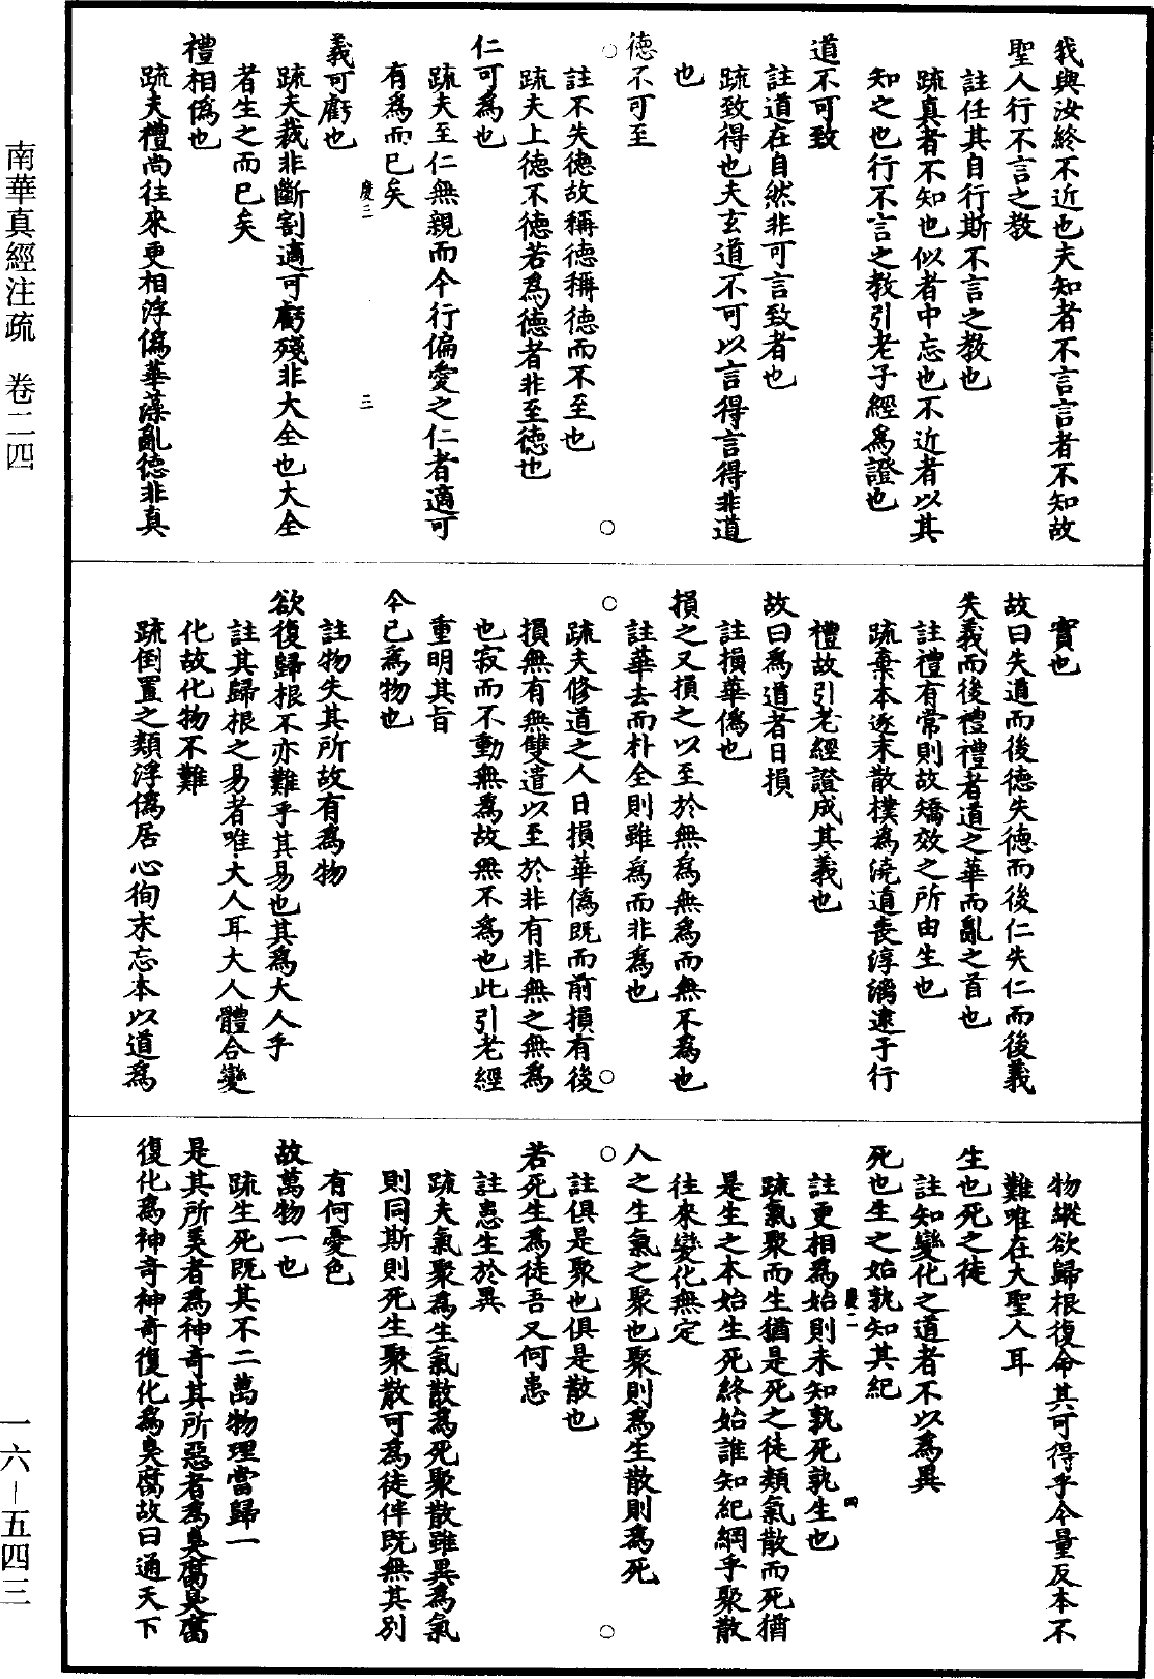 我與汝終不近也夫知者不言言者不知故
聖人行不言之教
註任其自行斯不言之教也
疏真者不知也似者中忘也不近者以其
知之也行不言之教引老子經爲證也
道不可致
註道在自然非可言致者也
疏致得也夫玄道不可以言得言得非道
也
德不可至
註不失德故稱德稱德而不至也
疏夫上德不德若爲德者非至德也
仁可爲也
疏夫至仁無親而今行偏愛之仁者適可
有爲而已矣
慶三 三
義可虧也
疏夫裁非斷割適可虧殘非大全也大全
者生之而已矣
禮相僞也
疏夫禮尚往來更相浮僞華藻亂德非真
實也
故曰失道而後德失德而後仁失仁而後義
失義而後禮禮者道之華而亂之首也
註禮有常則故矯效之所由生也
疏棄本逐末散樸爲澆道喪淳漓逮于行
禮故引老經證成其義也
故曰爲道者日損
註損華僞也
損之又損之以至於無爲無爲而無不爲也
註華去而朴全則雖爲而非爲也
疏夫修道之人日損華僞既而前損有後
損無有無雙遣以至於非有非無之無爲
也寂而不動無爲故無不爲也此引老經
重明其旨
今已爲物也
註物失其所故有爲物
欲復歸根不亦難乎其易也其爲大人乎
註其歸根之易者唯大人耳大人體合變
化故化物不難
疏倒置之類浮僞居心徇末忘本以道爲
物縱欲歸根復命其可得乎今量反本不
難唯在大聖人耳
生也死之徒
註知變化之道者不以爲異
死也生之始孰知其紀
註更相爲始則未知孰死孰生也
慶二 四
疏氣聚而生猶是死之徒類氣散而死猶
是生之本始生死終始誰知紀綱乎聚散
往來變化無定
人之生氣之聚也聚則爲生散則爲死
註俱是聚也俱是散也
若死生爲徒吾又何患
註患生於異
疏夫氣聚爲生氣散爲死聚散雖異爲氣
則同斯則死生聚散可爲徒伴既無其別
有何憂色
故萬物一也
疏生死既其不二萬物理當歸一
是其所美者爲神奇其所惡者爲臭腐臭腐
復化爲神奇神奇復化爲臭腐故曰通天下
南華真經注疏 卷二四
一六—五四三